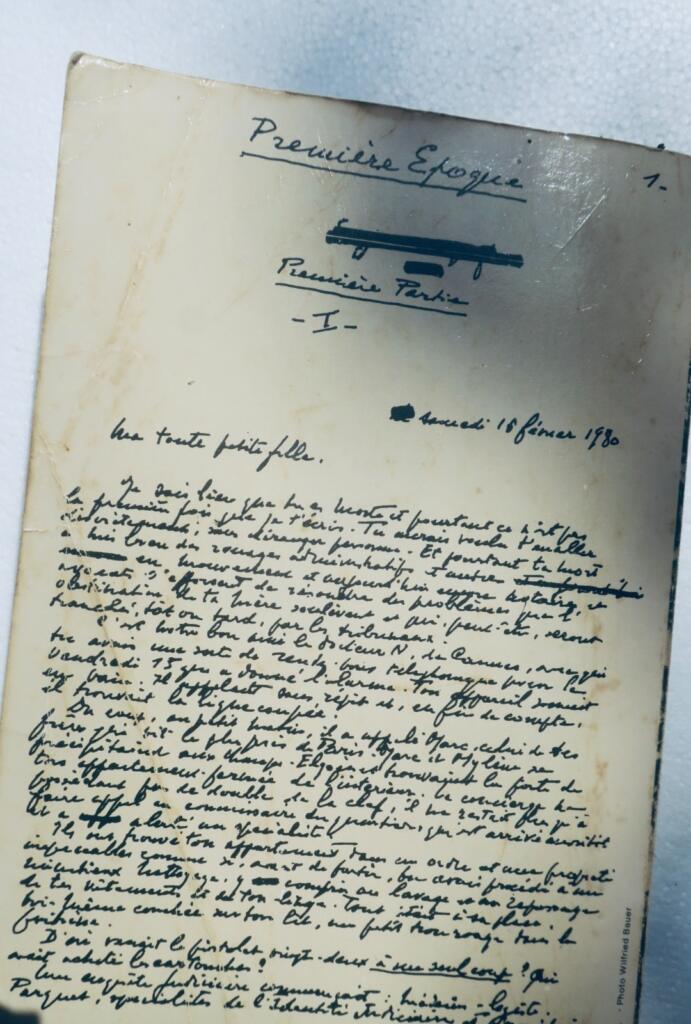 Première Epoque
1.-
Première Partie
- I -
samedi 16 février 1980
Ma toute petite fille.
Je sais bien que tu es morte et pourtant ce n'est pas
la première fois que je t'écris. Tu aurais voulu t'en aller
discrètement, sans déranger personne. Et pourtant ta mort
a mis bien des rouages administratifs et autres
en mouvement et aujourd'hui encore notaire, et
avocats s'efforcent de résoudre des problèmes que l'
obstination de ta mère soulèvent et qui, peut-être, seront
tranchés, tôt ou tard, par les tribunaux.
C'est notre bon ami le docteur N, de Cannes, avec qui
tu avais une sorte de rendez-vous téléphonique pour le
vendredi 15 qui a donné l'alarme. Ton appareil sonnait
en vain. Il appelait sans répit et, en fin de compte,
il trouvait la ligne coupée.
au petit matin, il a appelé Marc, celui de tes
frères qui vit le plus près de Paris. Marc et Mylène se
précipitaient aux Champs-Elysées et trouvaient la porte de
ton appartement fermée de l'intérieur. Le concierge ne
possédant pas de double de la clef, il ne restait plus qu'à
faire appel au commissaire du quartier, qui est arrivé aussitôt
et a alerté un spécialiste.
Ils ont trouvé ton appartement dans un ordre et une propreté
impeccables comme si, avant de partir, tu avais procédé à un
minutieux nettoyage, y compris au lavage et au repassage
de tes vêtements et de ton linge. Tout était à sa place.
toi-même couchée sur ton lit, un petit trou rouge dans la
poitrine.
D'où venait le pistolet vingt-deux à un seul coup ? Qui
avait acheté les cartouches ?
Une enquête judiciaire commençait : médecin-légiste,
Parquet, spécialistes de l'Identité Judiciaire
- Photo Wilfried Bauer